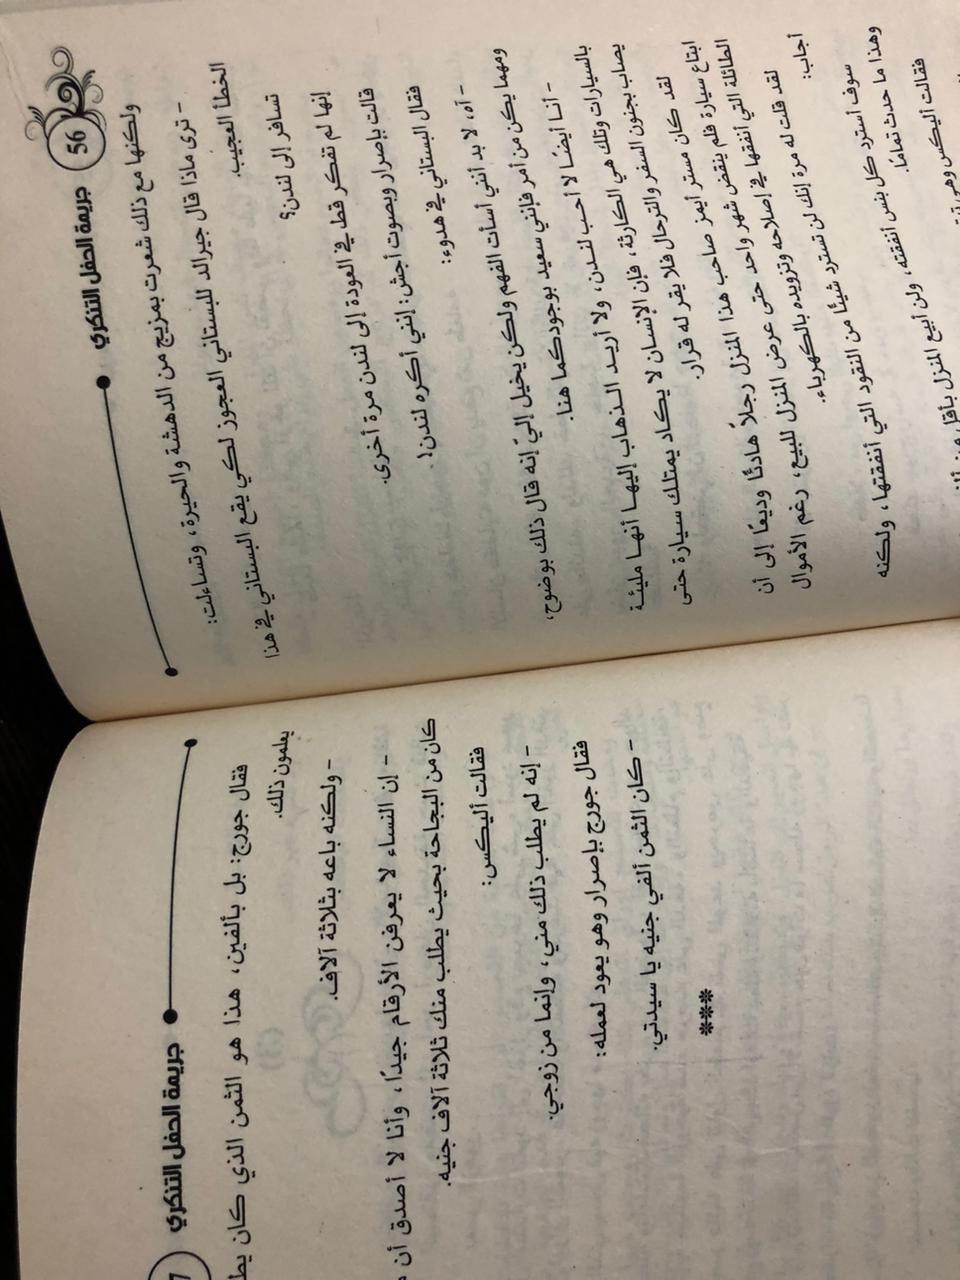 56
جريمة الحفل التنكري
ولكنها مع ذلك شعرت بمزيج من الدهشة والحيرة، وتساءلت:
- ترى ماذا قال جيرالد للبستاني العجوز لكي يقع البستاني في هذا
الخطأ العجيب.
تسافر إلى لندن؟
إنها لم تفكر قط في العودة إلى لندن مرة أخرى.
قالت بإصرار وبصوت أجش: إنني أكره لندن!.
فقال البستاني في هدوء:
- آه، لا بد أنني أسأت الفهم ولكن يخيل إليّ إنه قال ذلك بوضوح،
ومهما يكن من أمر فإنني سعيد بوجودكما هنا.
- أنا أيضًا لا أحب لندن، ولا أريد الذهاب إليها أنها مليئة
بالسيارات وتلك هي الكارثة، فإن الإنسان لا يكاد يمتلك سيارة حتى
يصاب بجنون السفر والترحال فلا يقر له قرار.
لقد كان مستر أيمز صاحب هذا المنزل رجلاً هادئًا وديعًا إلى أن
ابتاع سيارة فلم ينقض شهر واحد حتى عرض المنزل للبيع، رغم الأموال
الطائلة التي أنفقها في إصلاحه وتزويده بالكهرباء.
لقد قلت له مرة إنك لن تسترد شيئًا من النقود التي أنفقتها، ولكنه
أجاب:
سوف أسترد كل بنس أنفقته، ولن أبيع المنزل بأقل من
وهذا ما حدث تمامًا.
فقالت أليكس وهي
جريمة الحفل التنكري
فقال جورج: بل بألفين، هذا هو الثمن الذي كان
يعلمون ذلك.
- ولكنه باعه بثلاثة آلاف.
- إن النساء لا يعرفن الأرقام جيدًا، وأنا لا أصدق أن
كان من البجاحة بحيث يطلب منك ثلاثة آلاف جنيه.
فقالت أليكس:
- إنه لم يطلب ذلك مني، وإنما من زوجي.
فقال جورج بإصرار وهو يعود لعمله:
- كان الثمن ألفي جنيه يا سيدتي.
***